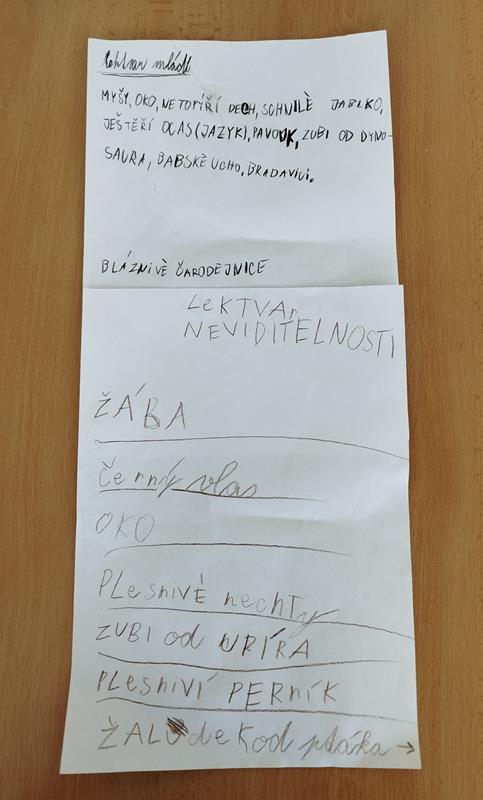 Lektvar mládí
MYŠY, OKO, NETOPÍŘÍ DECH, SCHNILÈ JABLKO,
JEŠTĚŘÍ OCAS (JAZYK), PAVOUK, ZUBI OD DYNO-
SAURA, BABSKÈ UCHO, BRADAVICI.
BLÁZNIVÈ ČARODEJNICE
LeKTVAr
NEVIDITELNOSTI
ŽÁBA
Černý vlas
OKO
PLesnivÈ nechTy
ZUBI od UPÍRA
PLesniví PERník
ŽALUdek od ptáka →